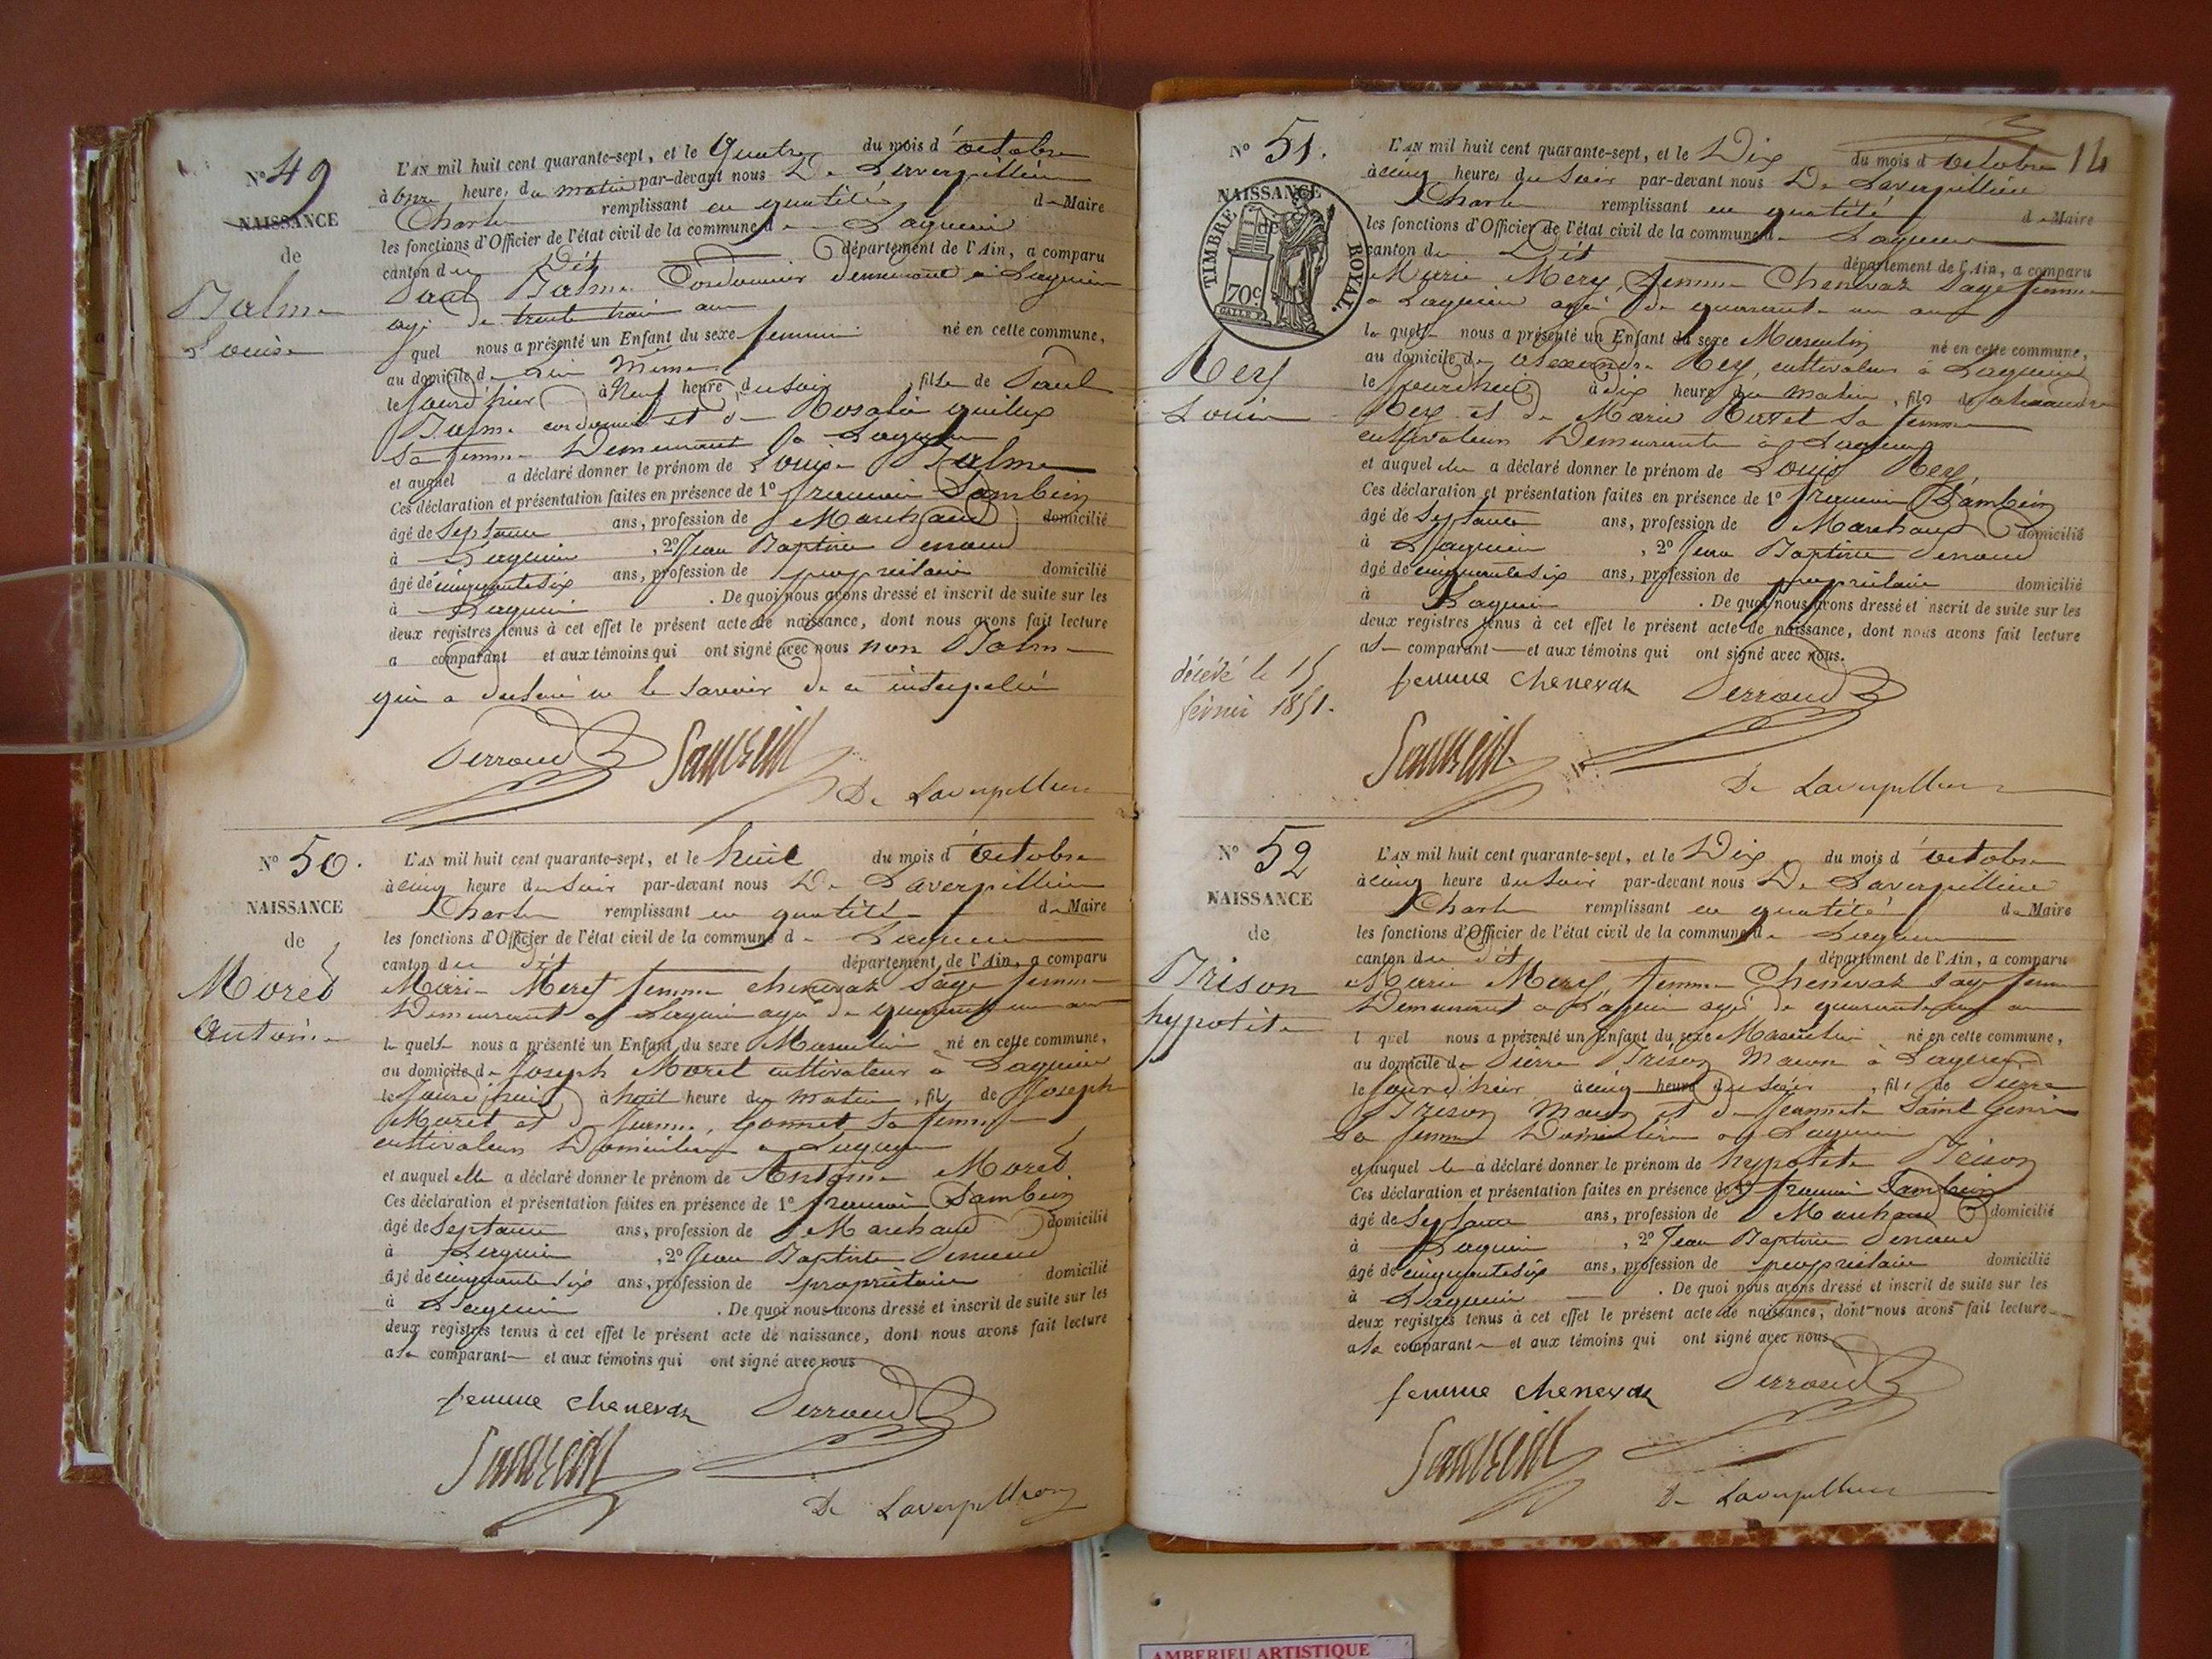 N° 49
NAISSANCE
de
Balme
Louise
L'AN mil huit cent quarante-sept, et le Quatre du mois d'octobre
à onze heure, du matin par-devant nous De Laverpillière
Charles remplissant en qualité de Maire
les fonctions d'Officier de l'état civil de la commune de Lagnieu
canton du dit département de l'Ain, a comparu
Paul Balme Cordonnier demeurant à Lagnieu
agé de trente trois ans
lequel nous a présenté un Enfant du sexe feminin né en cette commune,
au domicile de lui même
le jourd'hier à Neuf heure du soir, fille de Paul
Balme cordonnier et de Rosalie
sa femme Demeurant à Lagnieu
et auquel a déclaré donner le prénom de Louise Balme
Ces déclaration et présentation faites en présence de 1° françois Sambein
âgé de Septante ans, profession de Marchand domicilié
à Lagnieu, 2° Jean Baptiste Perroud
âgé de cinquante six ans, profession de propriétaire domicilié
à Lagnieu. De quoi nous avons dressé et inscrit de suite sur les
deux registres tenus à cet effet le présent acte de naissance, dont nous avons fait lecture
a comparant et aux témoins qui ont signé avec nous non Balme
qui a déclaré ne le savoir de ce interpellé
Perroud Sambein
De Laverpillière
N° 50.
NAISSANCE
de
Moret
Antoine
L'AN mil huit cent quarante-sept, et le huit du mois d'octobre
à cinq heure du soir par-devant nous De Laverpillière
Charles remplissant en qualité de Maire
les fonctions d'Officier de l'état civil de la commune de Lagnieu
canton du dit département de l'Ain, a comparu
Marie Merey femme chenevaz sage femme
Demeurant a Lagnieu agé de quarante un ans
la quelle nous a présenté un Enfant du sexe Masculin né en cette commune,
au domicile de Joseph Moret cultivateur à Lagnieu
le jourd'hui à huit heure du matin, fils de Joseph
Moret et de Jeanne Bonnet sa femme
cultivateurs Domiciliés a Lagnieu
et auquel elle a déclaré donner le prénom de Antoine Moret
Ces déclaration et présentation faites en présence de 1° françois Sambein
âgé de Septante ans, profession de Marchand domicilié
à Lagnieu, 2° Jean Baptiste Perroud
âgé de cinquante six ans, profession de propriétaire domicilié
à Lagnieu. De quoi nous avons dressé et inscrit de suite sur les
deux registres tenus à cet effet le présent acte de naissance, dont nous avons fait lecture
a la comparante et aux témoins qui ont signé avec nous
femme chenevaz Perroud
Sambein
De Laverpillière
14
N° 51.
NAISSANCE
de
TIMBRE ROYAL.
70c.
Rey
Louis
décédé le 15
février 1851.
L'AN mil huit cent quarante-sept, et le Dix du mois d'octobre
à cinq heure, du soir par-devant nous De Laverpillière
Charles remplissant en qualité de Maire
les fonctions d'Officier de l'état civil de la commune de Lagnieu
canton du Dit département de l'Ain, a comparu
Marie Merey, femme Chenevaz sage femme
a Lagnieu agé de quarante un ans
la quelle nous a présenté un Enfant du sexe Masculin né en cette commune,
au domicile de Alexandre Rey, cultivateur à Lagnieu
le jourd'hui à dix heure du matin, fils de alexandre
Rey et de Marie sa femme
cultivateurs Demeurants à Lagnieu
et auquel elle a déclaré donner le prénom de Louis Rey,
Ces déclaration et présentation faites en présence de 1° françois Sambein
âgé de septante ans, profession de Marchand domicilié
à Lagnieu, 2° Jean Baptiste Perroud
âgé de cinquante six ans, profession de propriétaire domicilié
à Lagnieu. De quoi nous avons dressé et inscrit de suite sur les
deux registres tenus à cet effet le présent acte de naissance, dont nous avons fait lecture
a comparant et aux témoins qui ont signé avec nous.
femme chenevaz Perroud
Sambein
De Laverpillière
N° 52
NAISSANCE
de
Brison
hypolite
L'AN mil huit cent quarante-sept, et le Dix du mois d'octobre
à cinq heure du soir par-devant nous De Laverpillière
Charles remplissant en qualité de Maire
les fonctions d'Officier de l'état civil de la commune de Lagnieu
canton du dit département de l'Ain, a comparu
Marie Merey, femme Chenevaz sage femme
Demeurant a Lagnieu agé de quarante un an
l quel nous a présenté un Enfant du sexe Masculin né en cette commune,
au domicile de Pierre Brison Maçon à Lagnieu
le jourd'hui à cinq heure du soir, fils de Pierre
Brison Maçon et de Jeannette Saint Genis
sa femme Domiciliés a Lagnieu
et auquel elle a déclaré donner le prénom de hypolite Brison
Ces déclaration et présentation faites en présence de 1° françois Sambein
âgé de septante ans, profession de Marchand domicilié
à Lagnieu, 2° Jean Baptiste Perroud
âgé de cinquante six ans, profession de propriétaire domicilié
à Lagnieu. De quoi nous avons dressé et inscrit de suite sur les
deux registres tenus à cet effet le présent acte de naissance, dont nous avons fait lecture
a la comparante et aux témoins qui ont signé avec nous
femme chenevaz Perroud
Sambein
De Laverpillière
AMBERIEU ARTISTIQUE